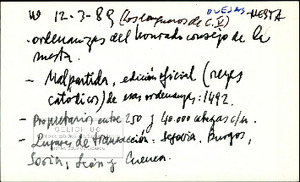 W 12-3-89 (Los borregueros de C. V) OVEJAS-MESTA
- ordenanzas del honrado consejo de la
mesta.
- Malpartida, edición oficial (reyes
católicos) de esas ordenanzas: 1492.
- Propietarios entre 250 y 40.000 cabezas c/u.
- Lugares de transacción: Segovia, Burgos,
Soria, León y Cuenca.